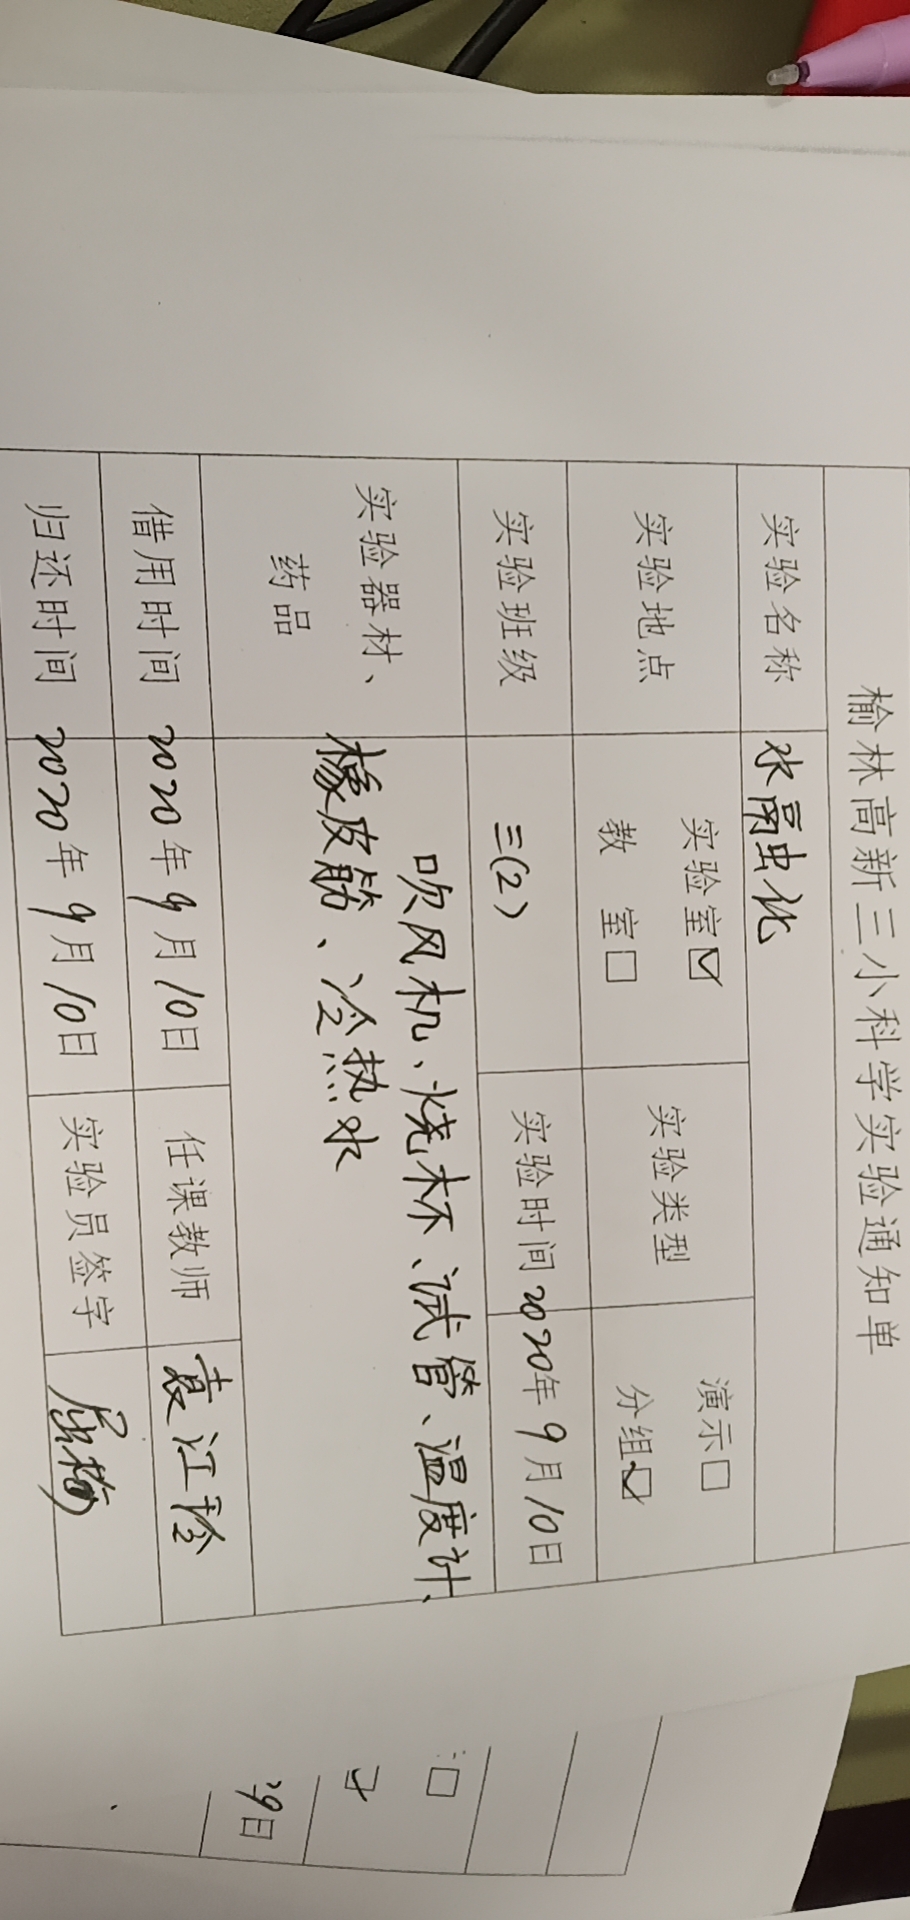 榆林高新三小科学实验通知单
实验名称 水融化
实验地点 实验室☑ 教 室□ 实验类型 演示□ 分组☑
实验班级 三(2) 实验时间 2020年9月10日
实验器材、药品 吹风机、烧杯、试管、温度计、
橡皮筋、冷热水
借用时间 2020年9月10日 任课教师 袁江珍
归还时间 2020年9月10日 实验员签字
□
9日